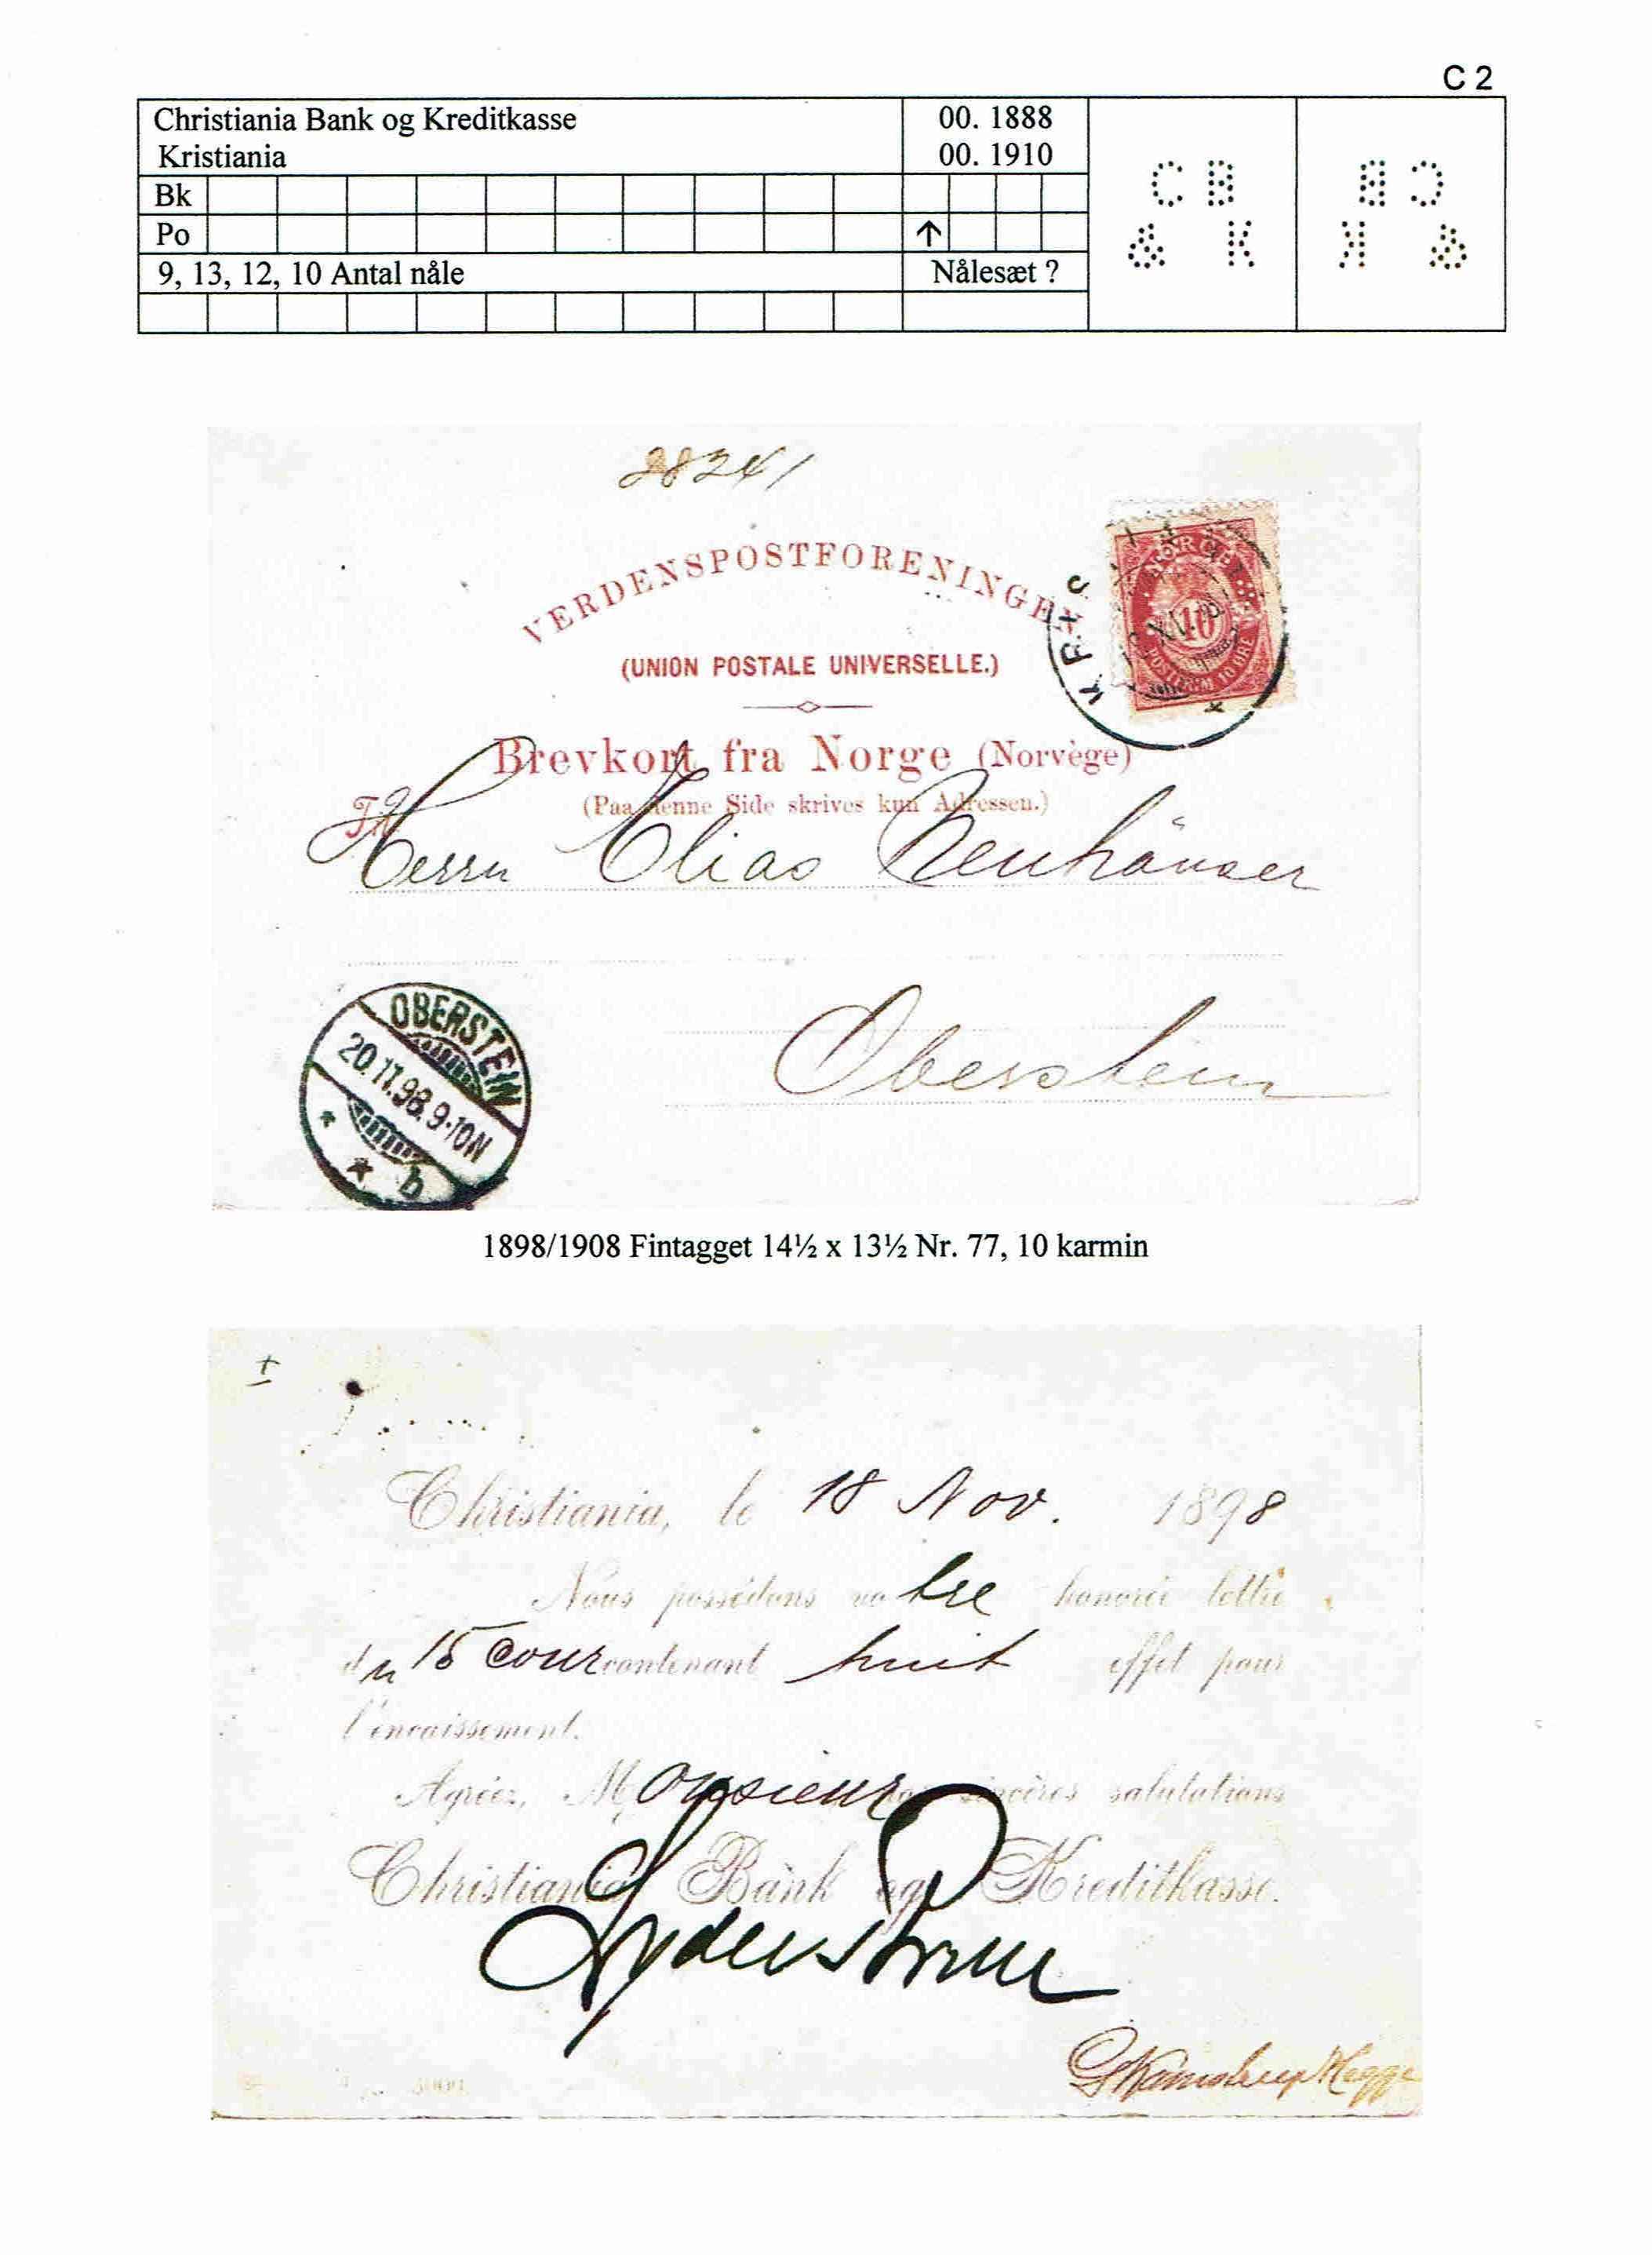 C 2
Christiania Bank og Kreditkasse 00. 1888
Kristiania 00. 1910
Bk
Po ↑
9, 13, 12, 10 Antal nåle Nålesæt ?
C B
& K
28241
VERDENSPOSTFORENINGEN
(UNION POSTALE UNIVERSELLE.)
NORGE
10
POSTFRIM. 10 ØRE
Brevkort fra Norge (Norvège)
(Paa denne Side skrives kun Adressen.)
Til
Herrn Elias Neuhäuser
Oberstein
OBERSTEIN
20.11.98.9-10N
* * b
1898/1908 Fintagget 14½ x 13½ Nr. 77, 10 karmin
Christiania, le 18 Nov. 1898
Nous possédons votre honorée lettre
du 15 cour contenant huit effet pour
l'encaissement.
Agréez, Monsieur, nos sincères salutations
Christiania Bank og Kreditkasse.